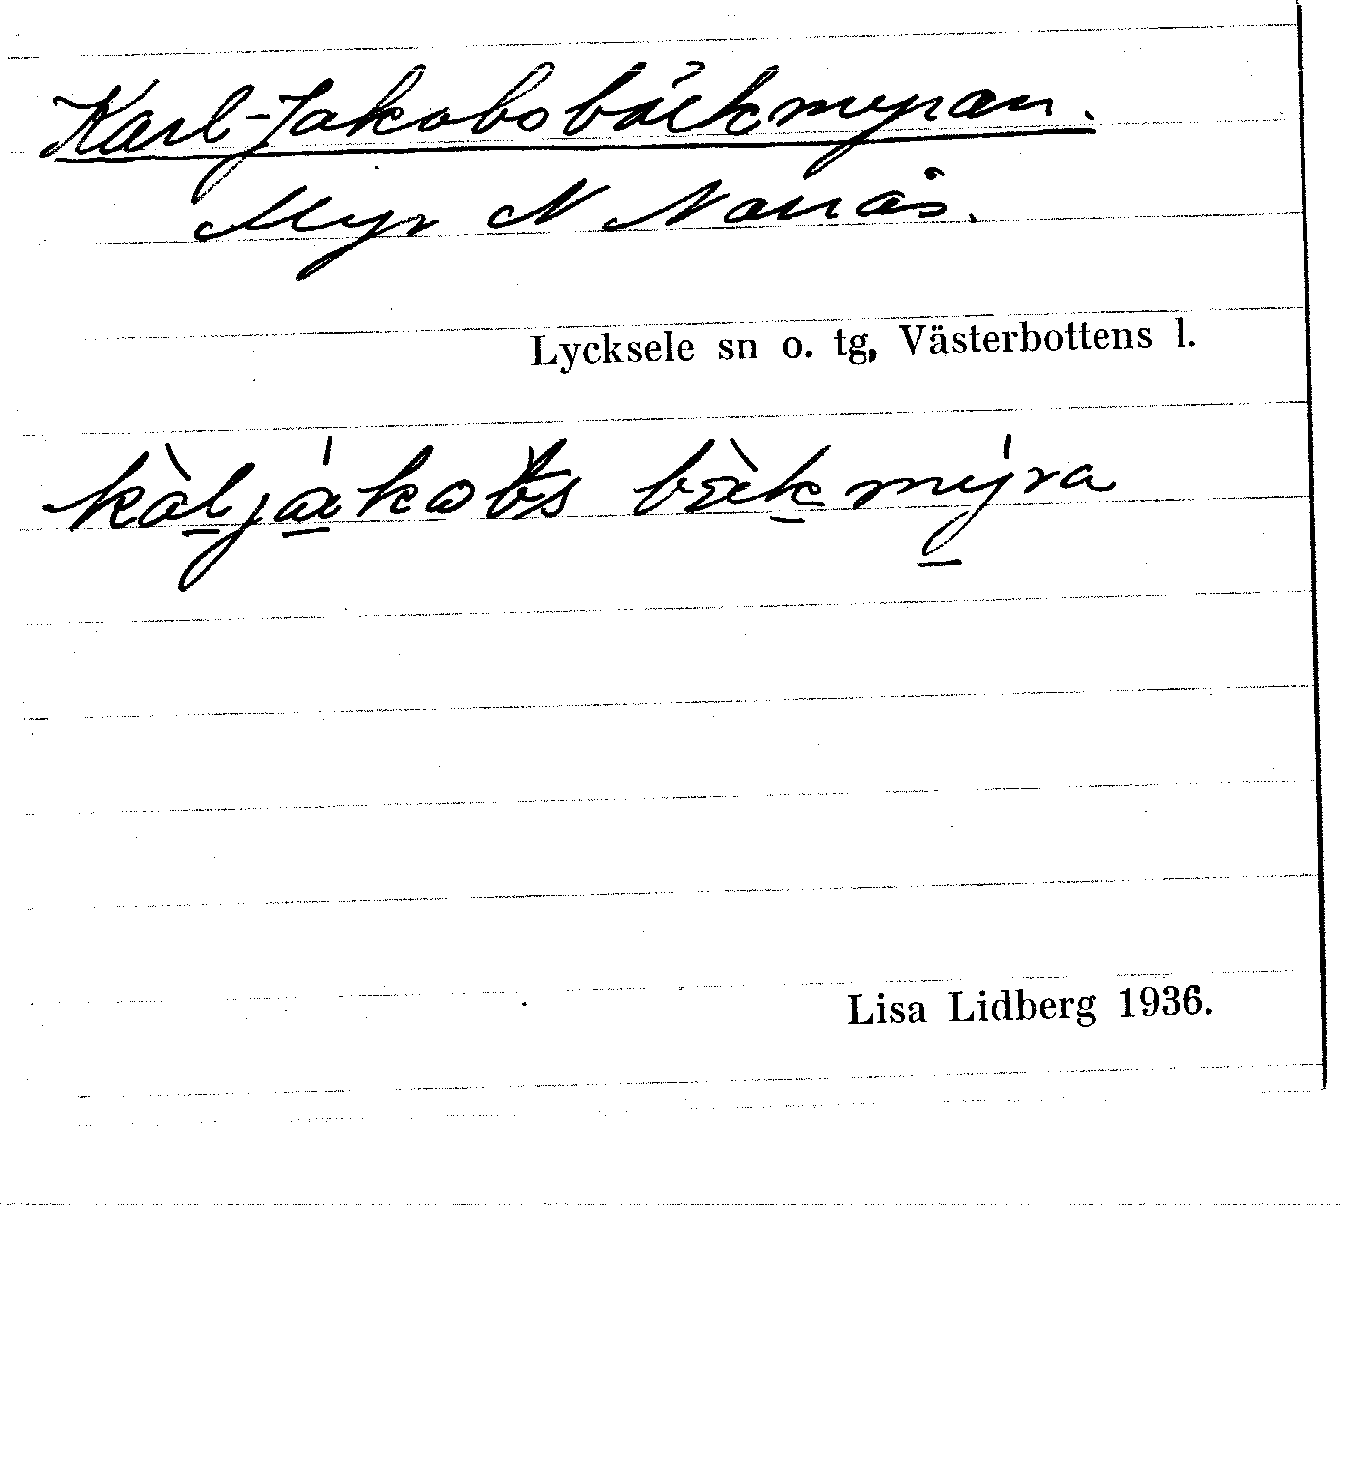 Karl-Jakobsbäckmyran.
Myr N Nanås.
Lycksele sn o. tg, Västerbottens l.
kàljákobs bäckmýra
Lisa Lidberg 1936.